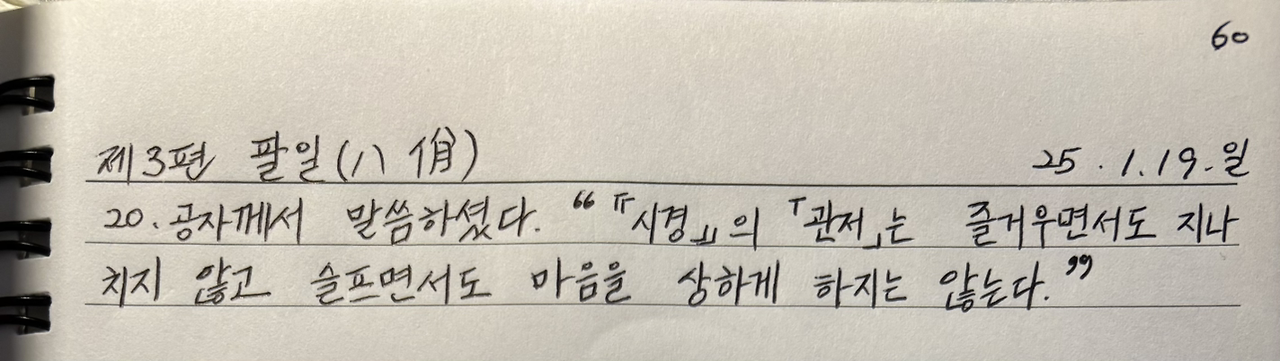 60
제3편 팔일(八佾) 25.1.19.일
20. 공자께서 말씀하셨다. “『시경』의 「관저」는 즐거우면서도 지나
치지 않고 슬프면서도 마음을 상하게 하지는 않는다.”